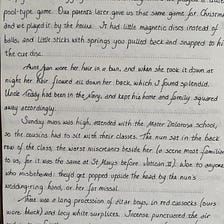 pool-type game. Our parents later gave us this same game for Christmas
and we played it by the house. It had little magnetic discs instead of
balls, and little sticks with springs you pulled back and snapped to hit
the cue disc.
Aunt Jean wore her hair in a bun, and when she took it down at
night her hair flowed all down her back, which I found splendid.
Uncle Teddy had been in the Navy, and kept his home and family squared
away accordingly.
Sunday mass was high, attended with the Mater Dolorosa school,
so the cousins had to sit with their classes. The nun sat in the back
row of the class, the worst miscreants beside her (a scene most familiar
to us, for it was the same at St Mary's before Vatican II). Woe to anyone
who misbehaved: they got popped upside the head by the nun's
wedding-ring hand, or her fat missal.
There was a long procession of altar boys, in red cassocks (ours
were black) and lacy white surplices. Incense punctuated the air